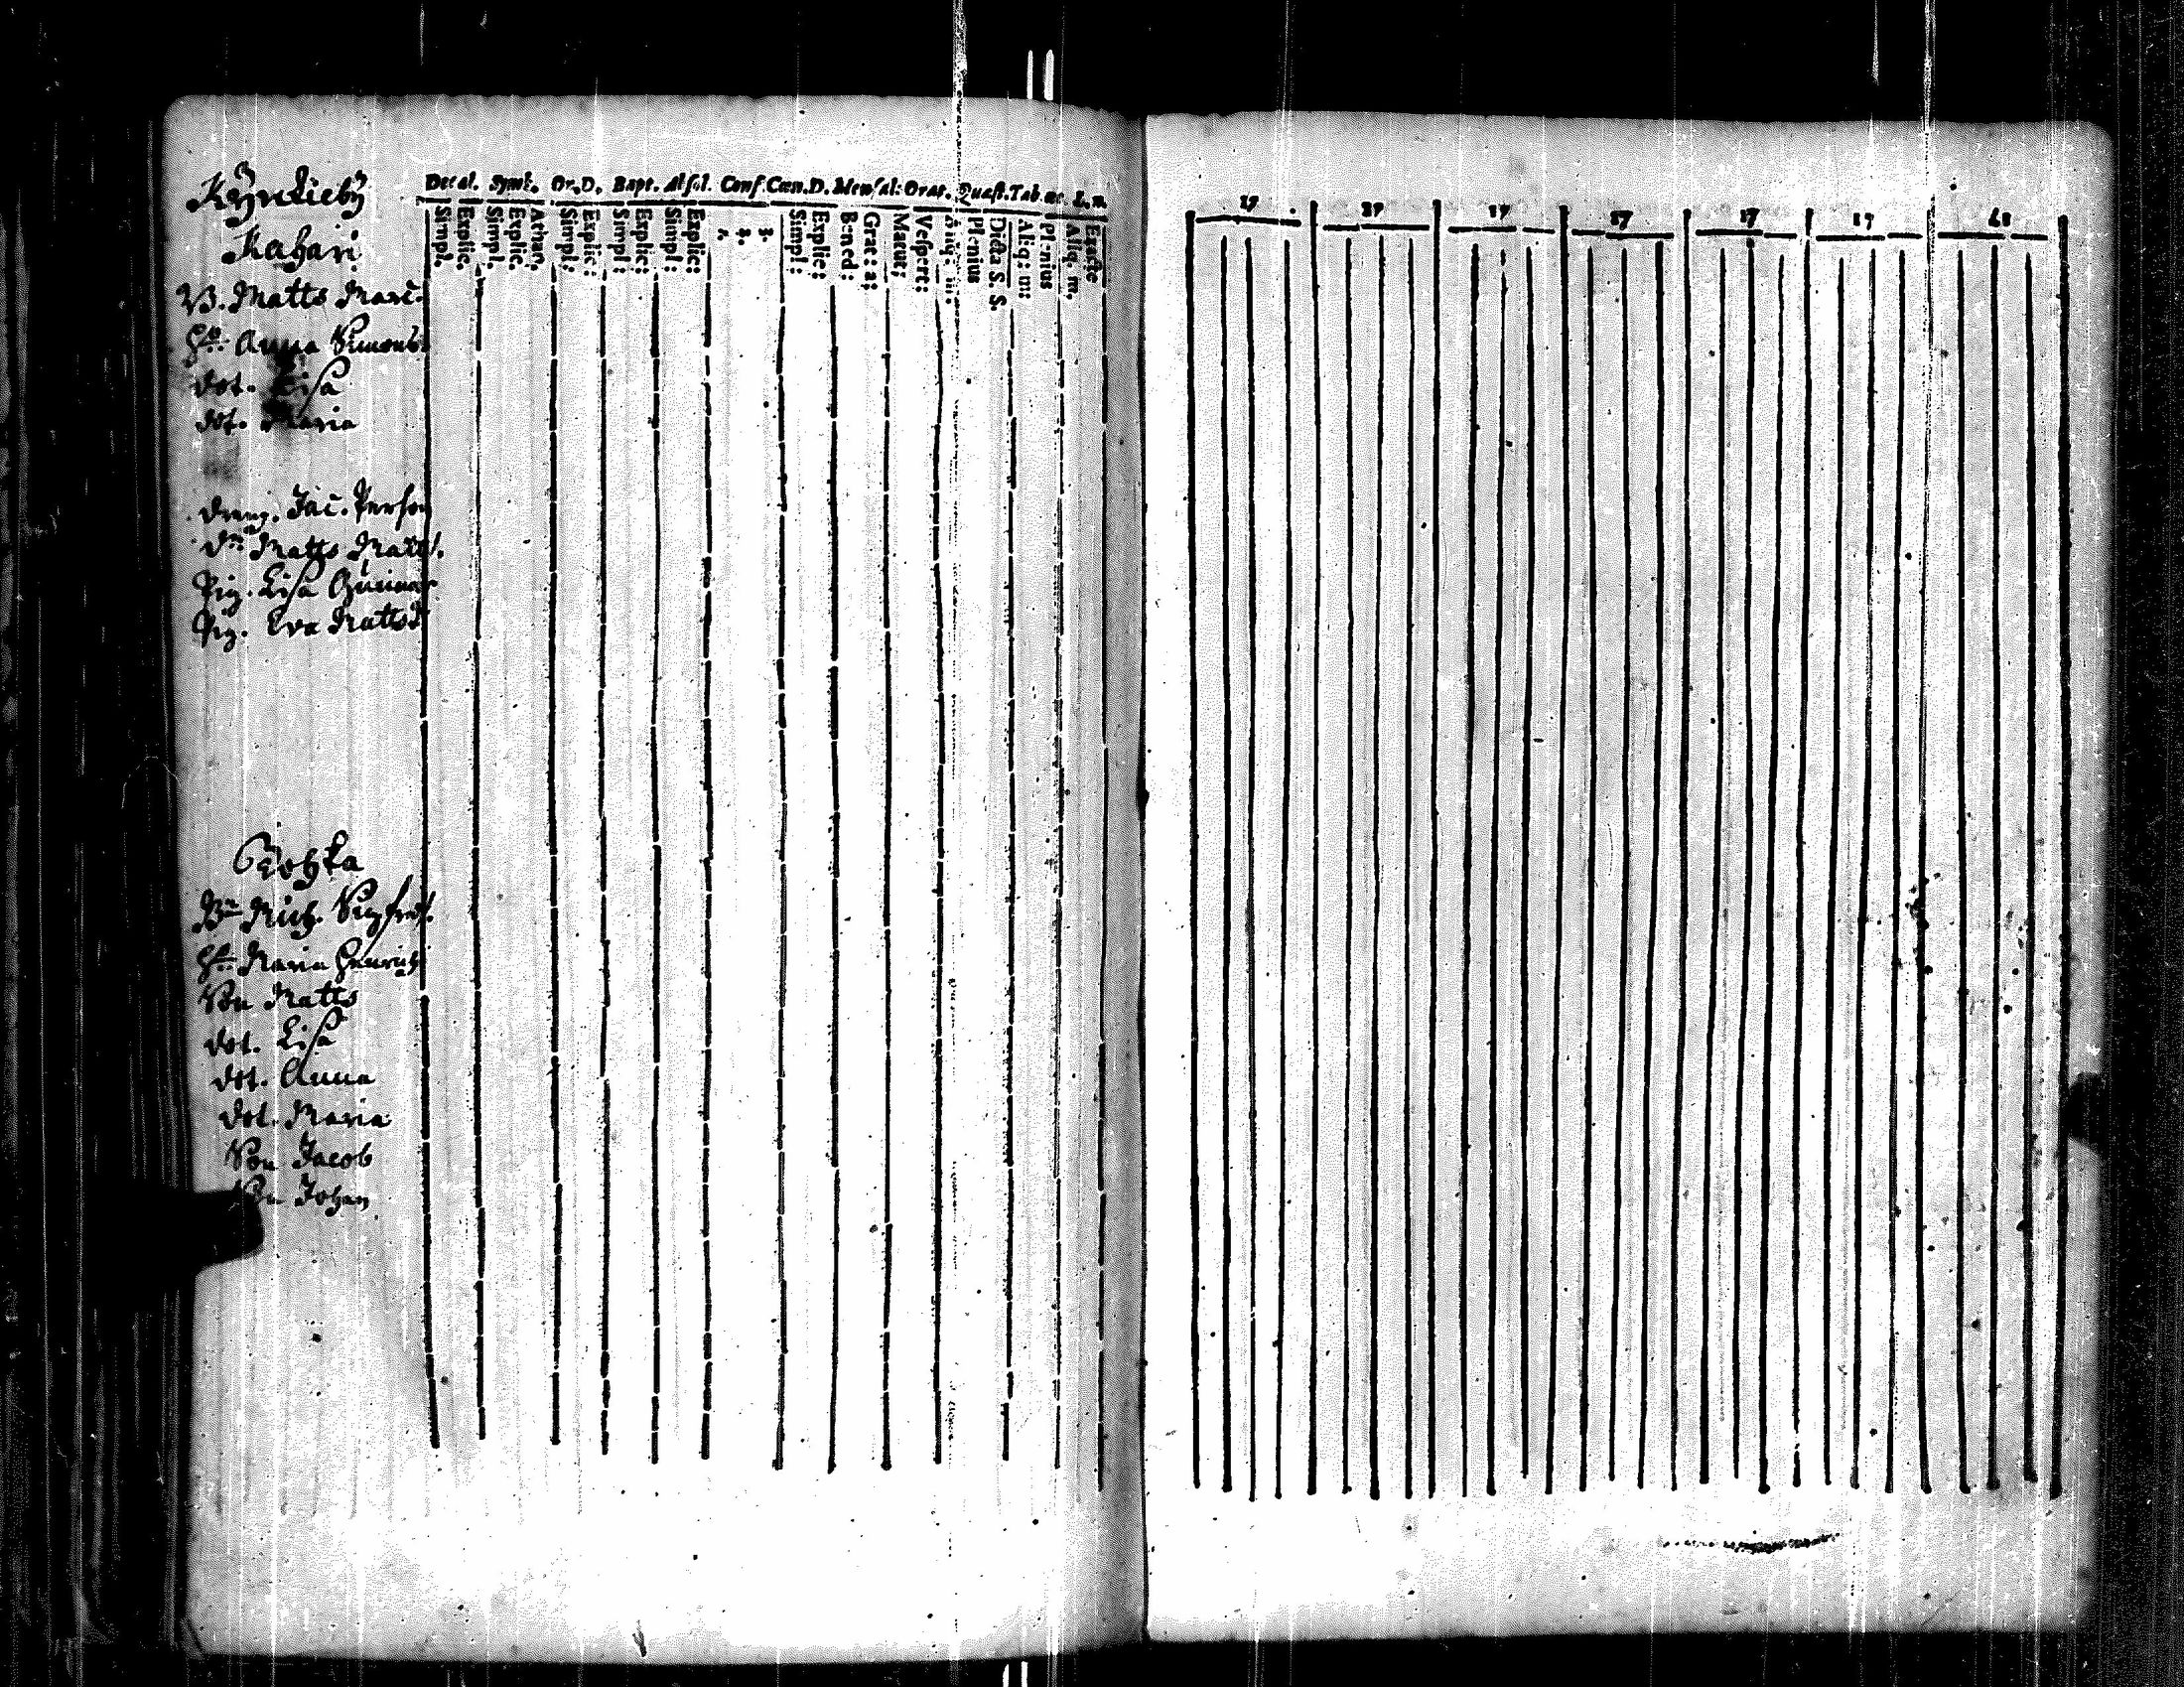 Kyrkieby
Kahari
B. Matts Marc.
H. Anna Simonsd.
dot. Lisa
dot. Maria
dreng. Jac. Persson
Matts Matts.
Pig. Lisa
Pig. Eva Mattsd
Bn Mich. Sigfreds.
H. Maria Henrichsd
Son Matts
dot. Lisa
dot. Anna
dot. Maria
Son Jacob
Son Johan
Decal. Symb. Or. D. Bapt. Absol. Conf. Cœn. D. Mensal: Orat. Quæst. Tab. œc. L. n.
Simpl.
Explic.
Simpl.
Explic.
Athan.
Simpl:
Explic:
Simpl:
Explic:
Simpl:
Explic:
1.
2.
3.
Simpl:
Explic:
Bened:
Grat: a:
Matut:
Vespert:
Aliq: m:
Plenius
Dicta S. S.
Aliq: m:
Plenius
Aliq. m.
Exacte
17 17 17 17 17 17 17